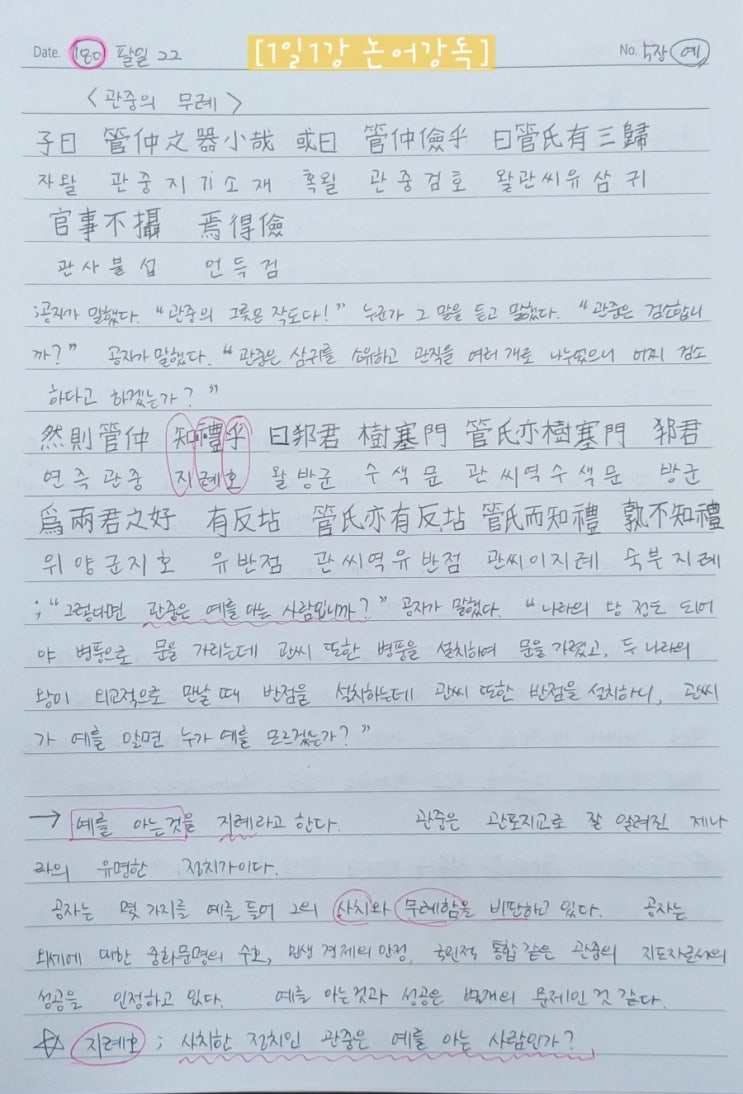 Date. 180 팔일 22 [1일1강 논어강독] No. 5장 예
<관중의 무례>
子曰 管仲之器小哉 或曰 管仲儉乎 曰管氏有三歸
자왈 관중지기소재 혹왈 관중검호 왈관씨유삼귀
官事不攝 焉得儉
관사불섭 언득검
;공자가 말했다. "관중의 그릇은 작도다!" 누군가 그 말을 듣고 말했다. "관중은 검소합니
까?" 공자가 말했다. "관중은 삼귀를 소유하고 관직을 여러 개로 나누었으니 어찌 검소
하다고 하겠는가?"
然則管仲 知禮乎 曰邦君 樹塞門 管氏亦樹塞門 邦君
연즉관중 지례호 왈방군 수색문 관씨역수색문 방군
爲兩君之好 有反坫 管氏亦有反坫 管氏而知禮 孰不知禮
위양군지호 유반점 관씨역유반점 관씨이지례 숙부지례
; "그렇다면 관중은 예를 아는 사람입니까?" 공자가 말했다. "나라의 왕 정도 되어
야 병풍으로 문을 가리는데 관씨 또한 병풍을 설치하여 문을 가렸고, 두 나라의
왕이 외교적으로 만날 때 반점을 설치하는데 관씨 또한 반점을 설치하니, 관씨
가 예를 알면 누가 예를 모르겠는가?"
→ 예를 아는것을 지례라고 한다. 관중은 관포지교로 잘 알려진 제나
라의 유명한 정치가이다.
공자는 몇 가지를 예를 들어 그의 사치와 무례함을 비판하고 있다. 공자는
외세에 대한 중화문명의 수호, 민생 경제의 안정, 국민적 통합 같은 관중의 지도자로서의
성공을 인정하고 있다. 예를 아는것과 성공은 별개의 문제인 것 같다.
☆ 지례호 ; 사치한 정치인 관중은 예를 아는 사람인가?